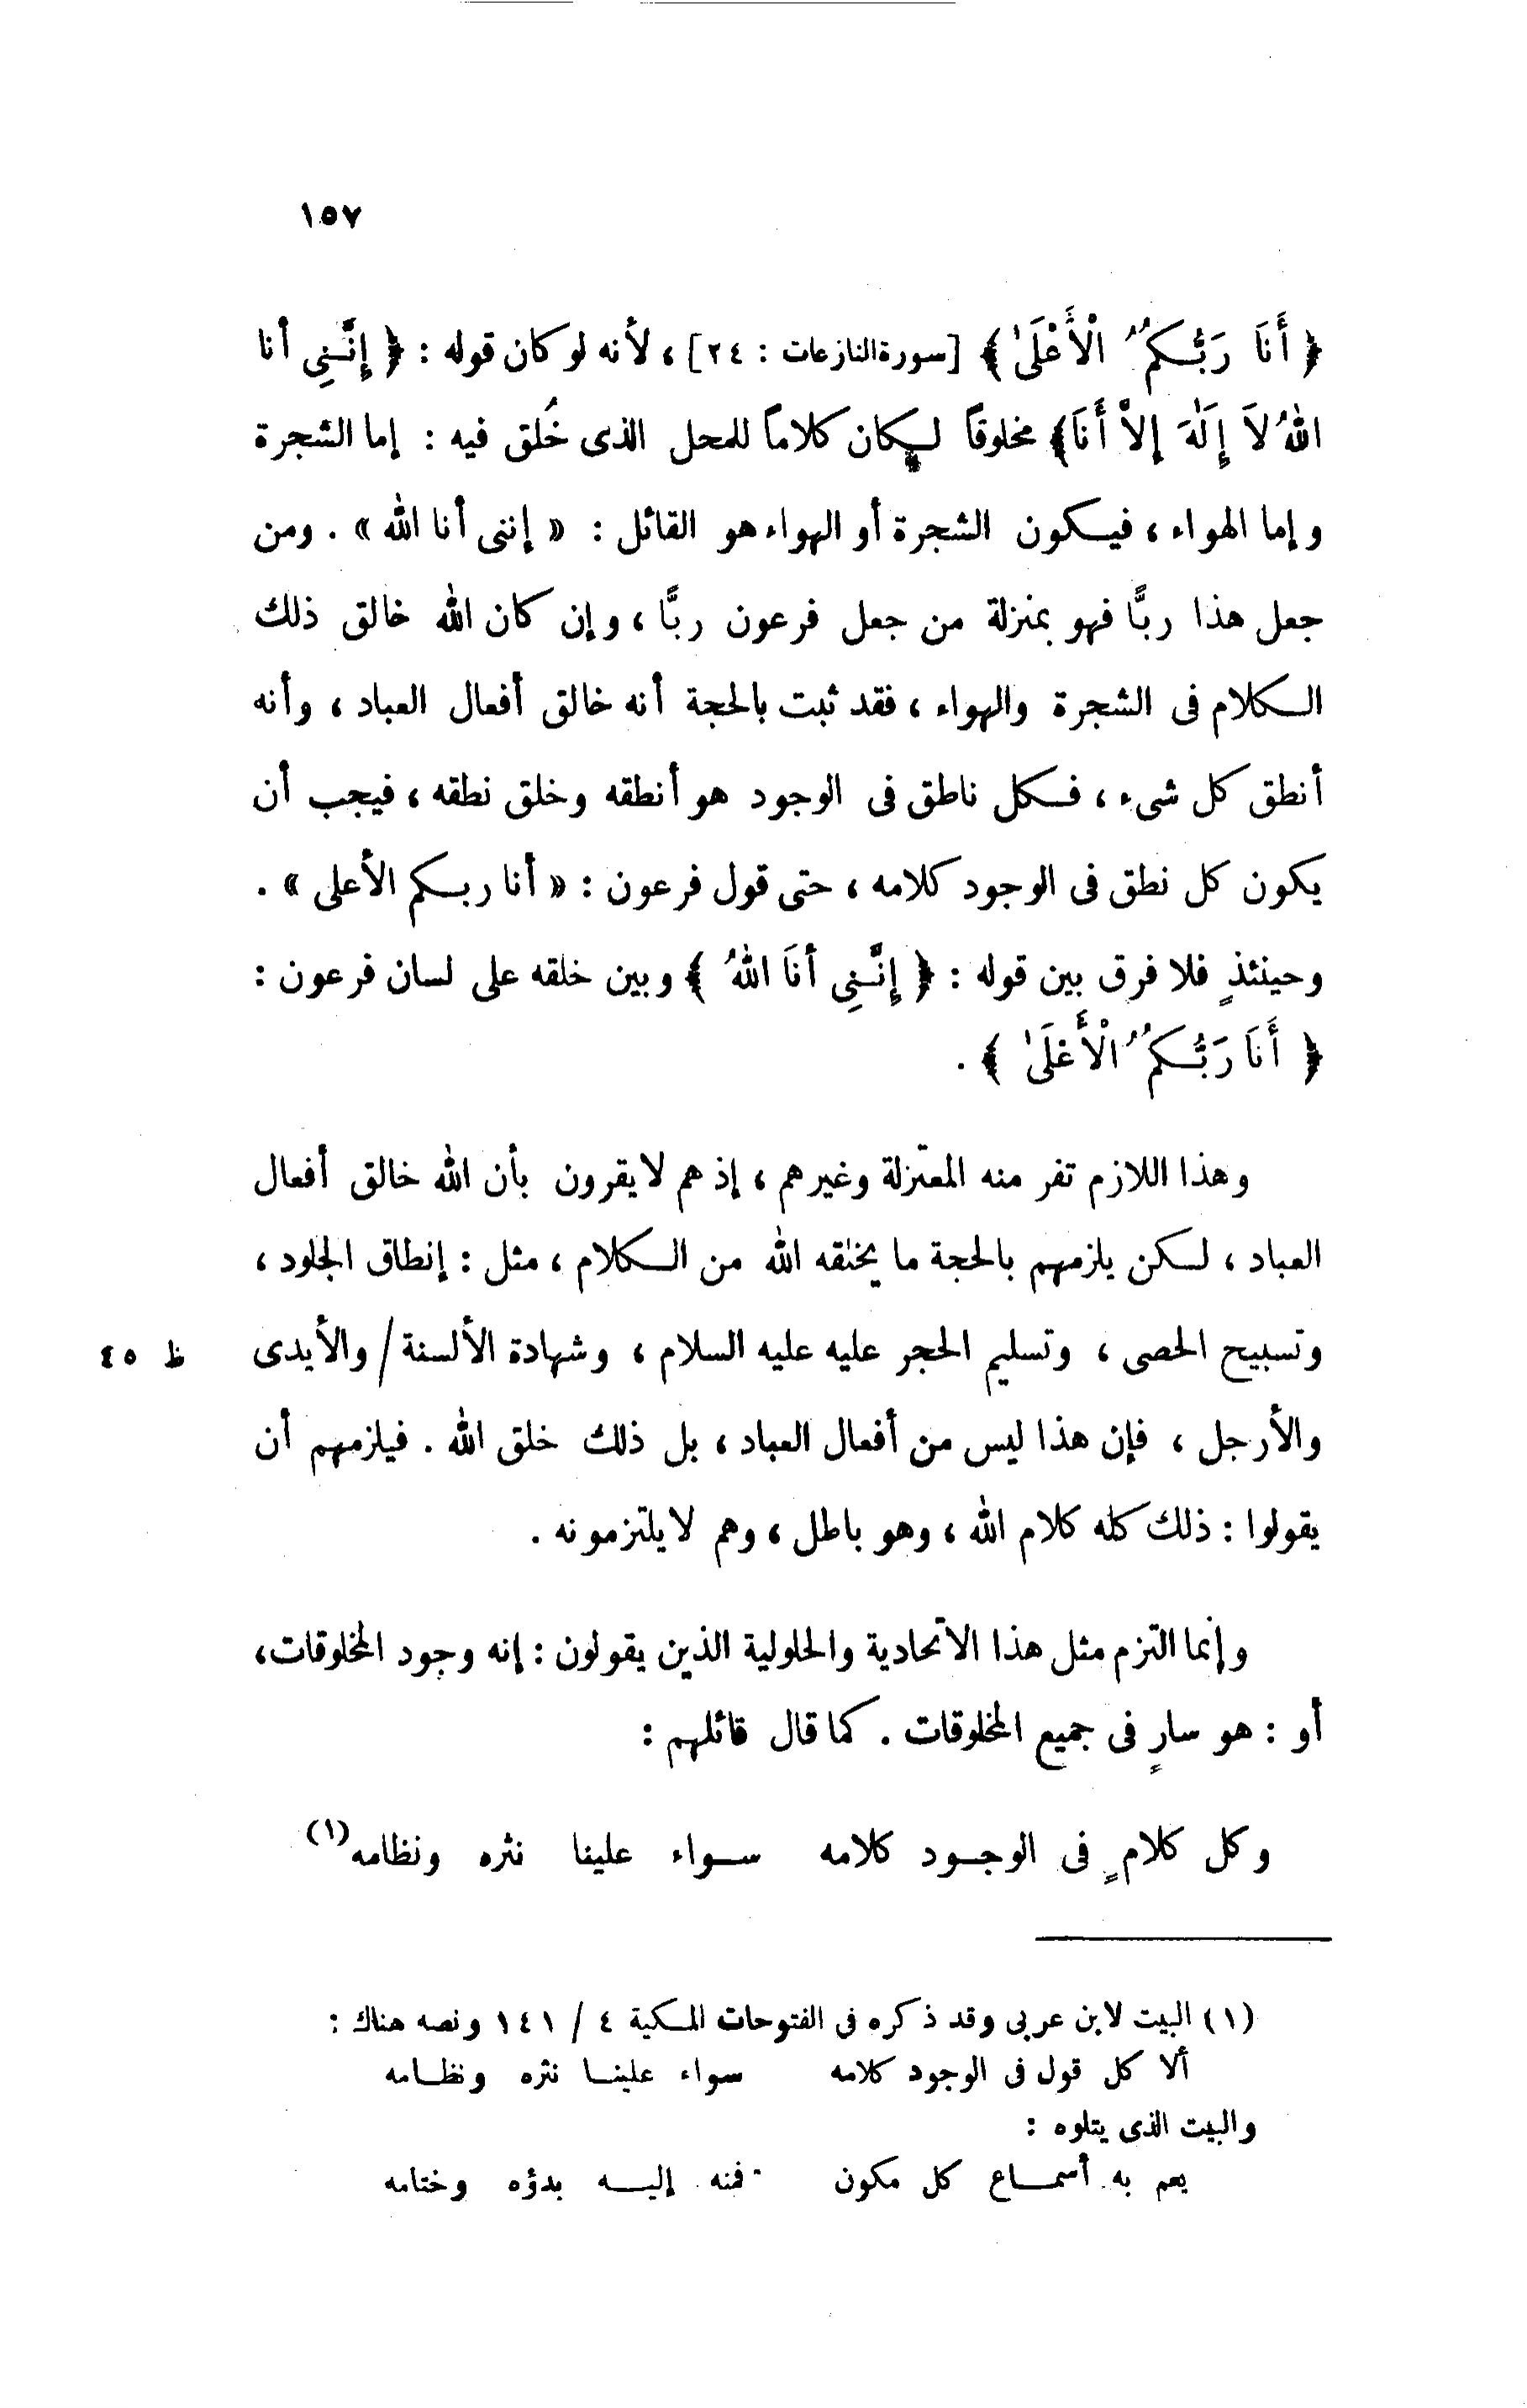 ١٥٧
﴿ أَنَا رَبُّكُمُ الْأَعْلَىٰ ﴾ [سورة النازعات : ٢٤] ، لأنه لو كان قوله : ﴿ إِنَّنِي أنا
اللهُ لاَ إِلَٰهَ إلاَّ أَنَا﴾ مخلوقاً لكان كلاماً للمحل الذى خُلق فيه : إما الشجرة
وإما الهواء ، فيكون الشجرة أو الهواء هو القائل : « إننى أنا الله » . ومن
جعل هذا ربًّا فهو بمنزلة من جعل فرعون ربًّا ، وإن كان الله خالق ذلك
الكلام فى الشجرة والهواء ، فقد ثبت بالحجة أنه خالق أفعال العباد ، وأنه
أنطق كل شىء ، فكل ناطق فى الوجود هو أنطقه وخلق نطقه ، فيجب أن
يكون كل نطق فى الوجود كلامه ، حتى قول فرعون : « أنا ربكم الأعلى » .
وحينئذٍ فلا فرق بين قوله : ﴿ إِنَّنِي أَنَا اللهُ ﴾ وبين خلقه على لسان فرعون :
﴿ أَنَا رَبُّكُمُ الْأَعْلَىٰ ﴾ .
وهذا اللازم تفر منه المعتزلة وغيرهم ، إذ هم لا يقرون بأن الله خالق أفعال
العباد ، لكن يلزمهم بالحجة ما يخلقه الله من الكلام ، مثل : إنطاق الجلود ،
وتسبيح الحصى ، وتسليم الحجر عليه عليه السلام ، وشهادة الألسنة / والأيدى ظ ٤٥
والأرجل ، فإن هذا ليس من أفعال العباد ، بل ذلك خلق الله . فيلزمهم أن
يقولوا : ذلك كله كلام الله ، وهو باطل ، وهم لا يلتزمونه .
وإنما التزم مثل هذا الاتحادية والحلولية الذين يقولون : إنه وجود المخلوقات،
أو : هو سارٍ فى جميع المخلوقات . كما قال قائلهم :
وكل كلامٍ فى الوجود كلامه سواء علينا نثره ونظامه(١)
(١) البيت لابن عربى وقد ذكره فى الفتوحات المكية ٤ / ١٤١ ونصه هناك :
ألا كل قول فى الوجود كلامه سواء علينا نثره ونظامه
والبيت الذى يتلوه :
يعم به أسماع كل مكون فمنه إليه بدؤه وختامه